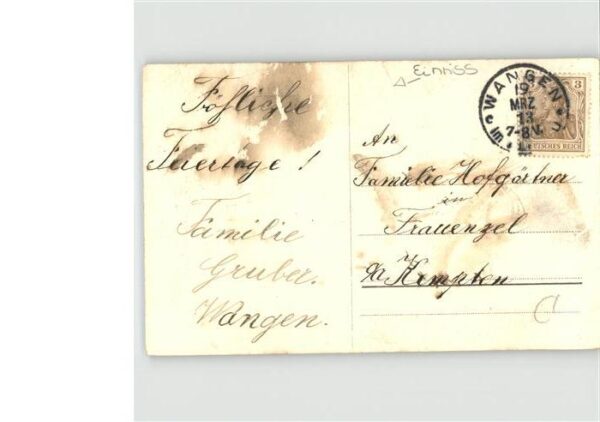 Einriss
Föhliche
Feiertage!
Familie
Gruber.
Wangen.
WANGEN
19
MRZ
13
7-8V.
Im
3
DEUTSCHES REICH
An
Familie Hofgärtner
in
Frauenzel
Kempten